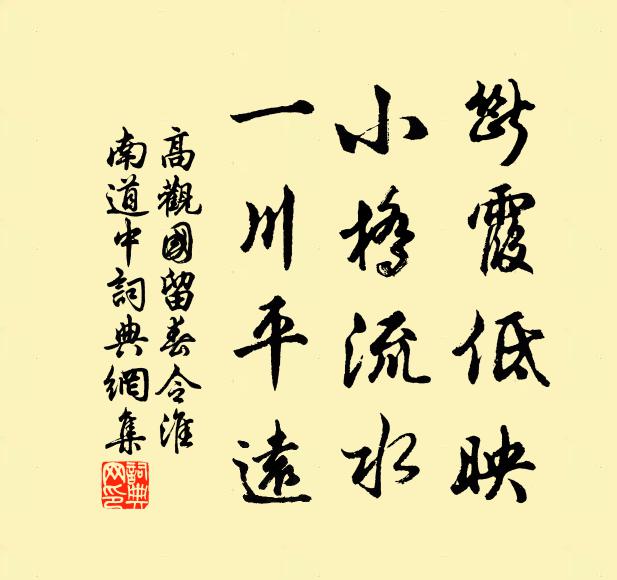 斷霞低映
小橋流水
一川平遠
高觀國留春令淮
南道中詞典網集
詞典网印